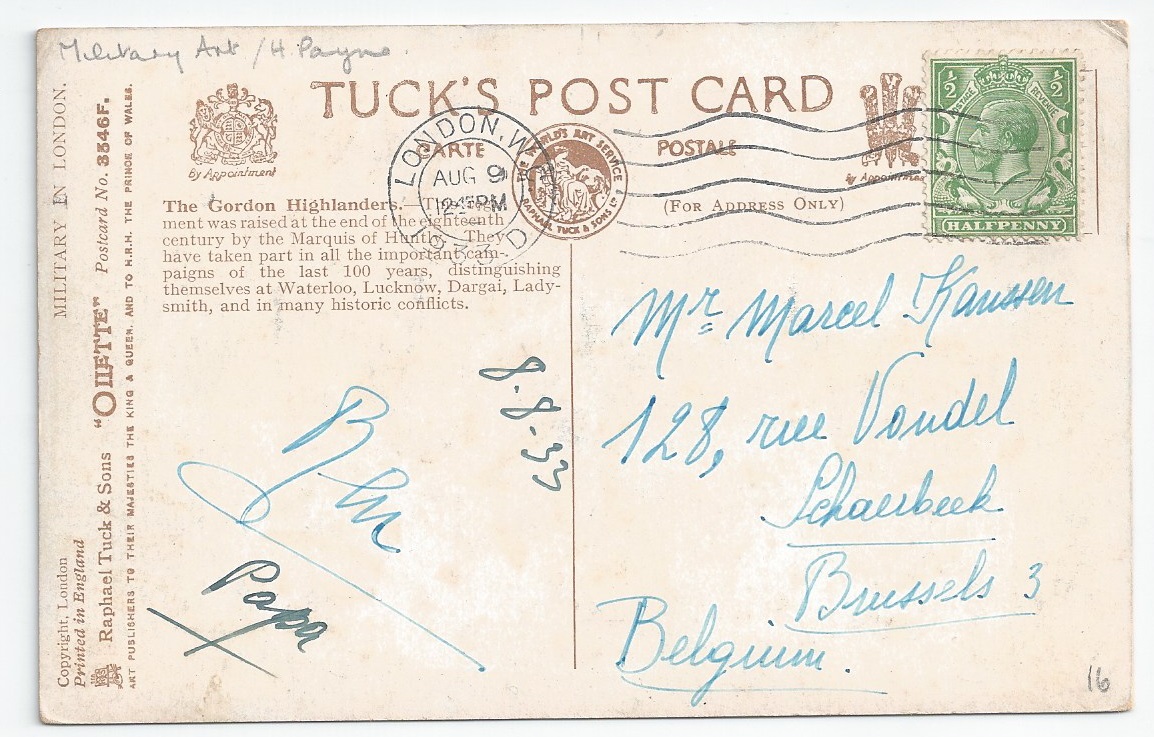 Military Art / H. Payne.
TUCK'S POST CARD
CARTE POSTALE
By Appointment
By Appointment
(FOR ADDRESS ONLY)
THE WORLD'S ART SERVICE
RAPHAEL TUCK & SONS LD
LONDON. W.
AUG 9
12 45 PM
1933
½ ½
POSTAGE REVENUE
HALFPENNY
The Gordon Highlanders.— The
ment was raised at the end of the eighteenth
century by the Marquis of Huntly. They
have taken part in all the important cam-
paigns of the last 100 years, distinguishing
themselves at Waterloo, Lucknow, Dargai, Lady-
smith, and in many historic conflicts.
8.8-33
Papa
Mr Marcel Kanssen
128, rue Vondel
Schaerbeek
Brussels 3
Belgium.
16
MILITARY IN LONDON.
Copyright, London
Printed in England
Raphael Tuck & Sons "OILETTE" Postcard No. 3546F.
ART PUBLISHERS TO THEIR MAJESTIES THE KING & QUEEN, AND TO H.R.H. THE PRINCE OF WALES.